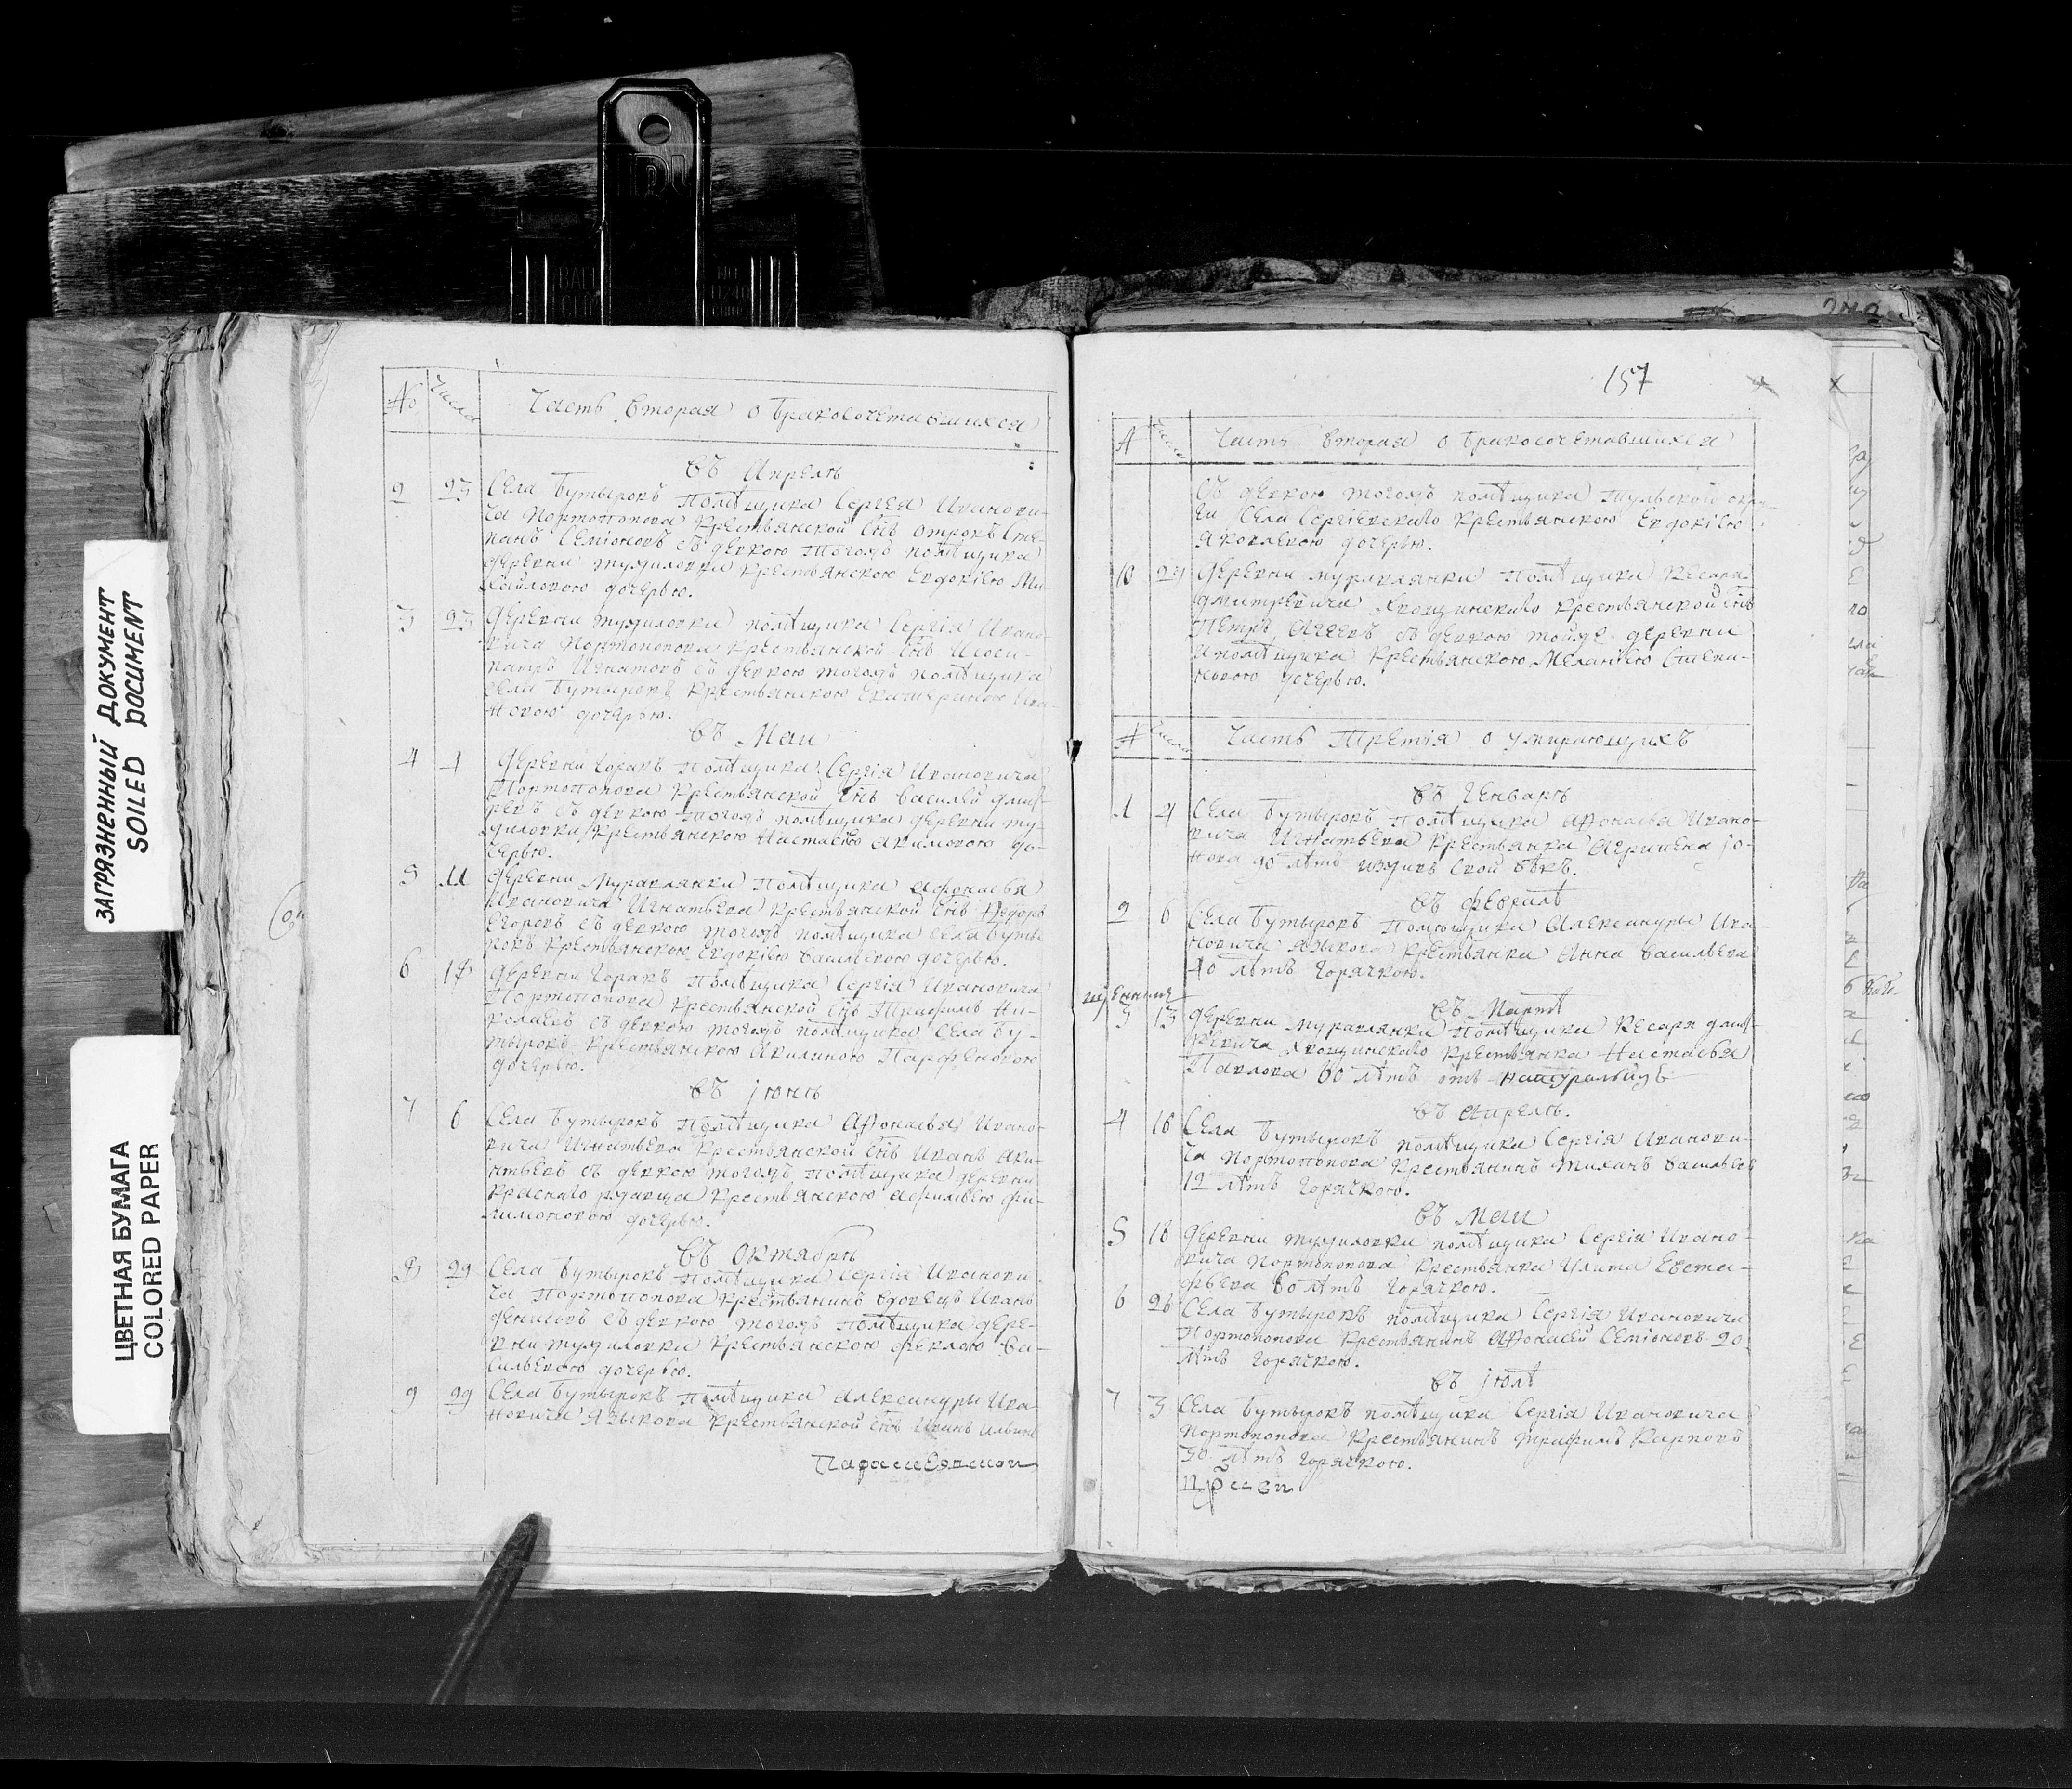 ЗАГРЯЗНЕННЫЙ ДОКУМЕНТ
SOILED DOCUMENT
ЦВЕТНАЯ БУМАГА
COLORED PAPER
№ Числа Часть вторая о бракосочетавшихся
въ Апрелѣ
2 23 Села Бутырокъ помѣщика Сергея Иванови-
ча Портопопова крестьянской снъ отрокъ Сте-
панъ Семіоновъ съ девкою тогожъ помѣщика
деревни Тужиловки крестьянскою Евдокіею Ми-
хайловою дочерью.
3 23 Деревни Тужиловки помѣщика Сергія Ивано-
вича Портопопова крестьянской снъ
Игнатовъ съ девкою тогожъ помѣщика
села Бутырокъ крестьянскою Екатериною Ива-
новою дочерью.
въ Маи
4 1 Деревни помѣщика Сергія Ивановича
Портопопова крестьянской снъ Василей
съ девкою тогожъ помѣщика деревни Ту-
жиловки крестьянскою Настасіею Акимовою до-
черью.
5 11 Деревни Муравлянки помѣщика Афонасья
Ивановича Игнатьева крестьянской снъ Федоръ
Егоровъ съ девкою тогожъ помѣщика села Буты-
рокъ крестьянскою Евдокіею Васильевою дочерью.
6 18 Деревни помѣщика Сергія Ивановича
Портопопова крестьянской снъ Трифонъ Ни-
колаевъ съ девкою тогожъ помѣщика села Бу-
тырокъ крестьянскою Акилиною Парфеновою
дочерью.
въ іюнѣ
7 6 Села Бутырокъ помѣщика Афонасья Ивано-
вича Игнатьева крестьянской снъ Иванъ
съ девкою тогожъ помѣщика деревни
Краснаго крестьянскою Афимьею Фи-
лимоновою дочерью.
въ Октябрѣ
8 29 Села Бутырокъ помѣщика Сергія Иванови-
ча Портопопова крестьянинъ вдовецъ Иванъ
Денисовъ съ девкою тогожъ помѣщика дере-
вни Тужиловки крестьянскою Феклою Ва-
сильевою дочерью.
9 29 Села Бутырокъ помѣщика Александры Ива-
новича Языкова крестьянской снъ Иванъ Ильинъ
157
№ Числа Часть вторая о бракосочетавшихся
съ девкою тогожъ помѣщика Тульской окру-
ги села Сергіевскаго крестьянскою Евдокіею
Яковлевою дочерью.
10 29 Деревни Муравлянки помѣщика Кесаря
Дмитревича Хвощинскаго крестьянской снъ
Петръ Агеевъ съ девкою тойже деревни
и помѣщика крестьянскою Меланіею
дочерью.
№ Числа Часть третія о умирающихъ
въ Генварѣ
1 4 Села Бутырокъ помѣщика Афонасья Ивано-
вича Игнатьева крестьянка Агрипена Іо-
нова 90 лѣтъ изживъ свой вѣкъ.
въ Февралѣ
2 6 Села Бутырокъ помющика Александры Ива-
новича Языкова крестьянка Анна Васильева
40 лѣтъ горячкою.
въ Мартѣ
3 13 Деревни Муравлянки помѣщика Кесаря Дмит-
ревича Хвощинскаго крестьянка Настасья
Павлова 60 лѣтъ
въ Апрелѣ.
4 18 Села Бутырокъ помѣщика Сергія Иванови-
ча Портопопова крестьянинъ Тиханъ Васильевъ
12 лѣтъ горячкою.
въ Маи
5 18 Деревни Тужиловки помѣщика Сергія Ивано-
вича Портопопова крестьянка Улита Евста-
фьева 60 лѣтъ горячкою.
6 26 Села Бутырокъ помѣщика Сергія Ивановича
Портопопова крестьянинъ Афонасей Семіоновъ 20
лѣтъ горячкою.
въ іюлѣ
7 3 Села Бутырокъ помѣщика Сергія Ивановича
Портопопова крестьянинъ Трафимъ Карповъ
30 лѣтъ горячкою.